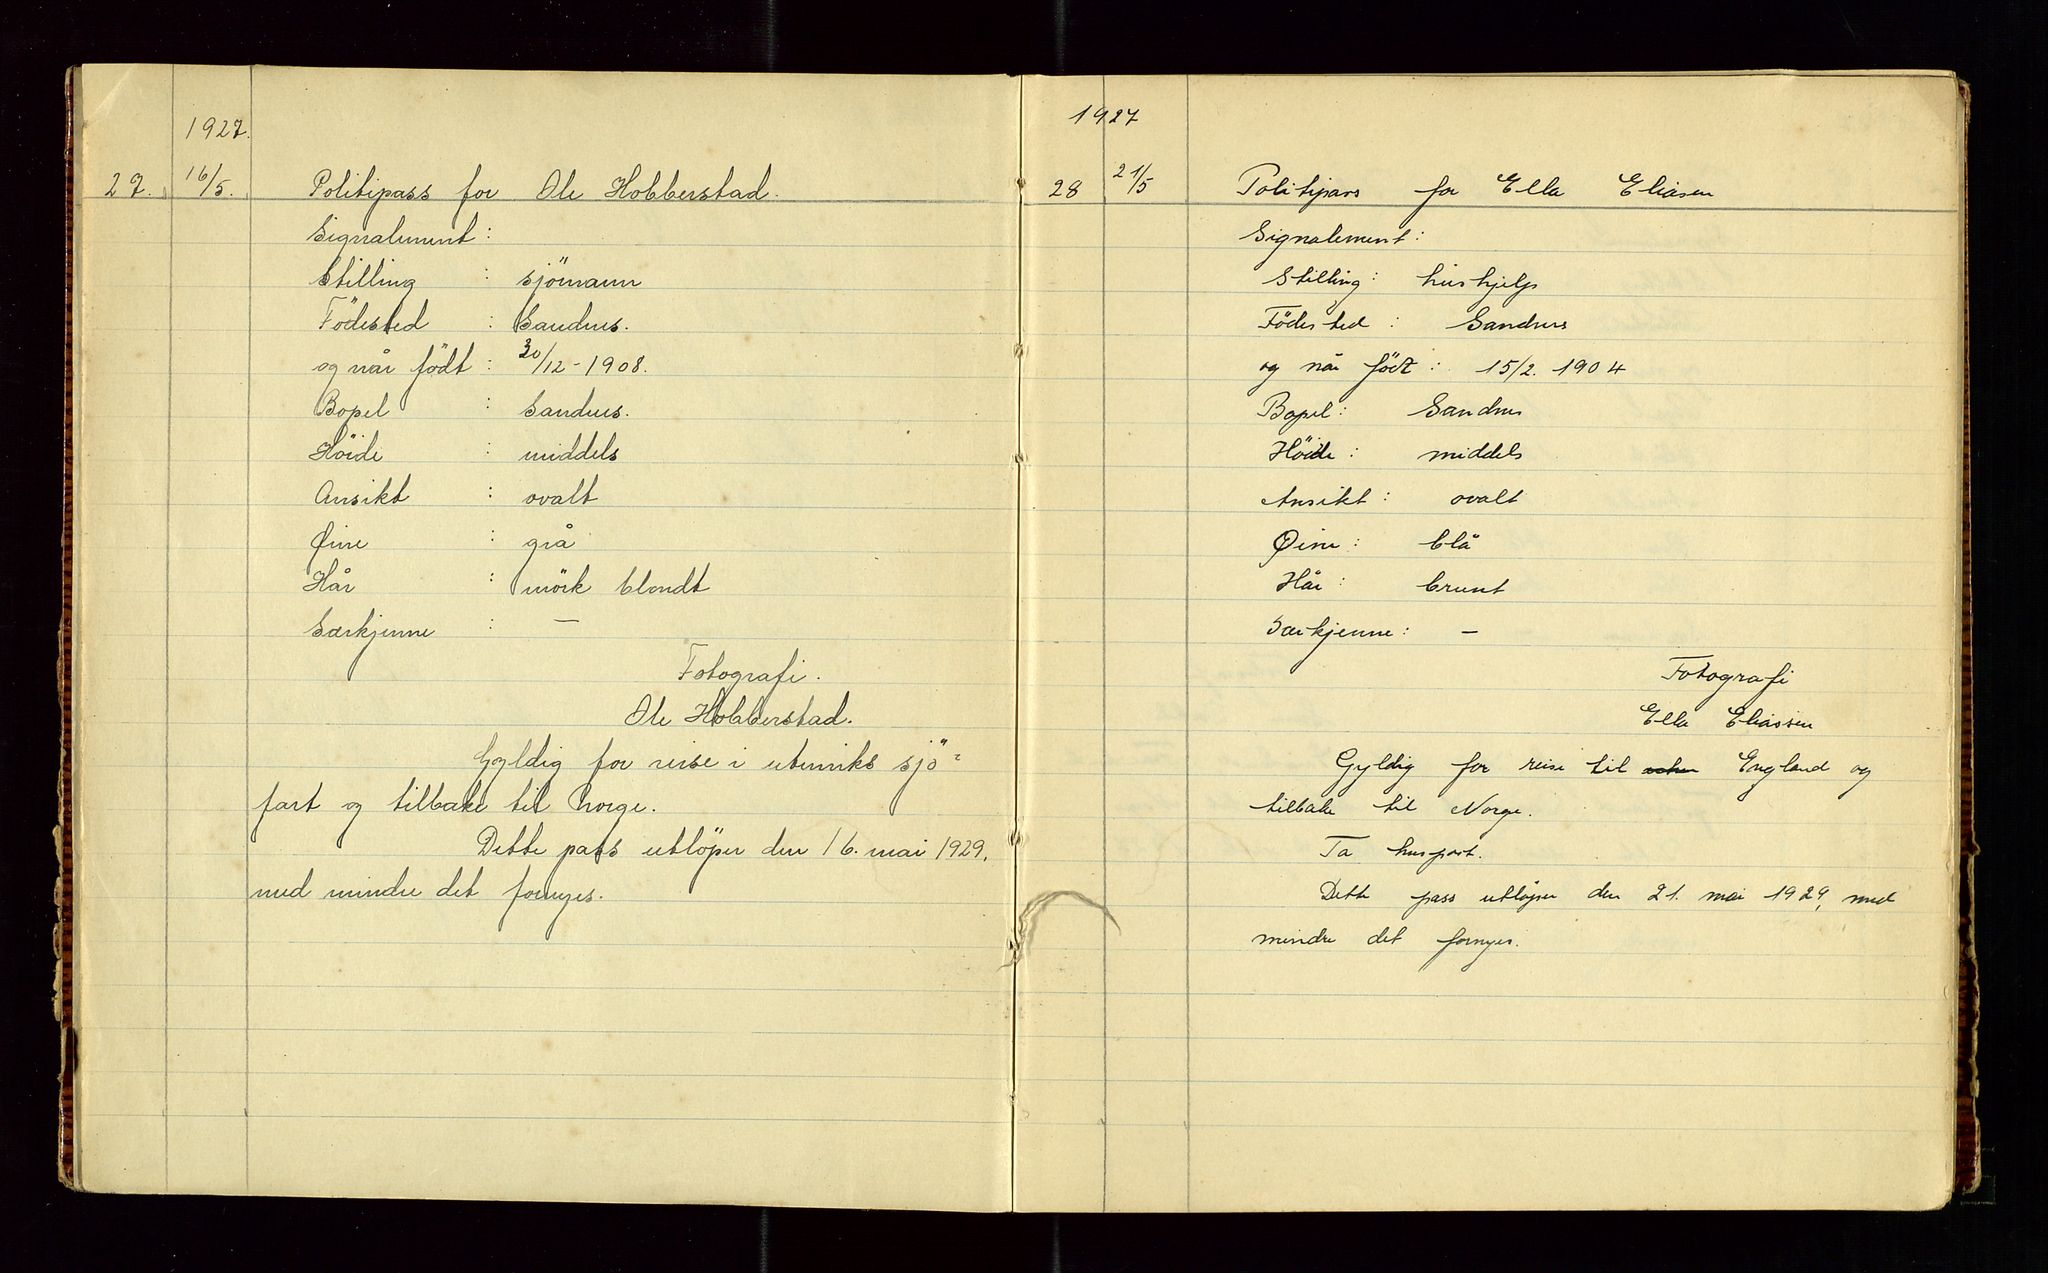 1927.
27. 16/5. Politipass for Ole Hobberstad.
Signalement:
Stilling : sjömann
Födested : Sandnes.
og når födt : 30/12-1908.
Bopel : Sandnes.
Höide : middels
Ansikt : ovalt
Øine : grå
Hår : mörk blondt
Særkjenne : —
Fotografi.
Ole Hobberstad.
Gyldig for reise i utenriks sjö=
fart og tilbake til Norge.
Dette pass utlöper den 16. mai 1929,
med mindre det fornyes.
1927
28 21/5 Politipass for Ella Eliasen
Signalement:
Stilling : hushjelp
Födested : Sandnes
og når födt : 15/2. 1904
Bopel : Sandnes
Höide : middels
Ansikt : ovalt
Øine : blå
Hår : brunt
Særkjenne : —
Fotografi
Ella Eliassen
Gyldig for reise til England og
tilbake til Norge.
Ta huspost.
Dette pass utlöper den 21. mai 1929, med
mindre det fornyes.